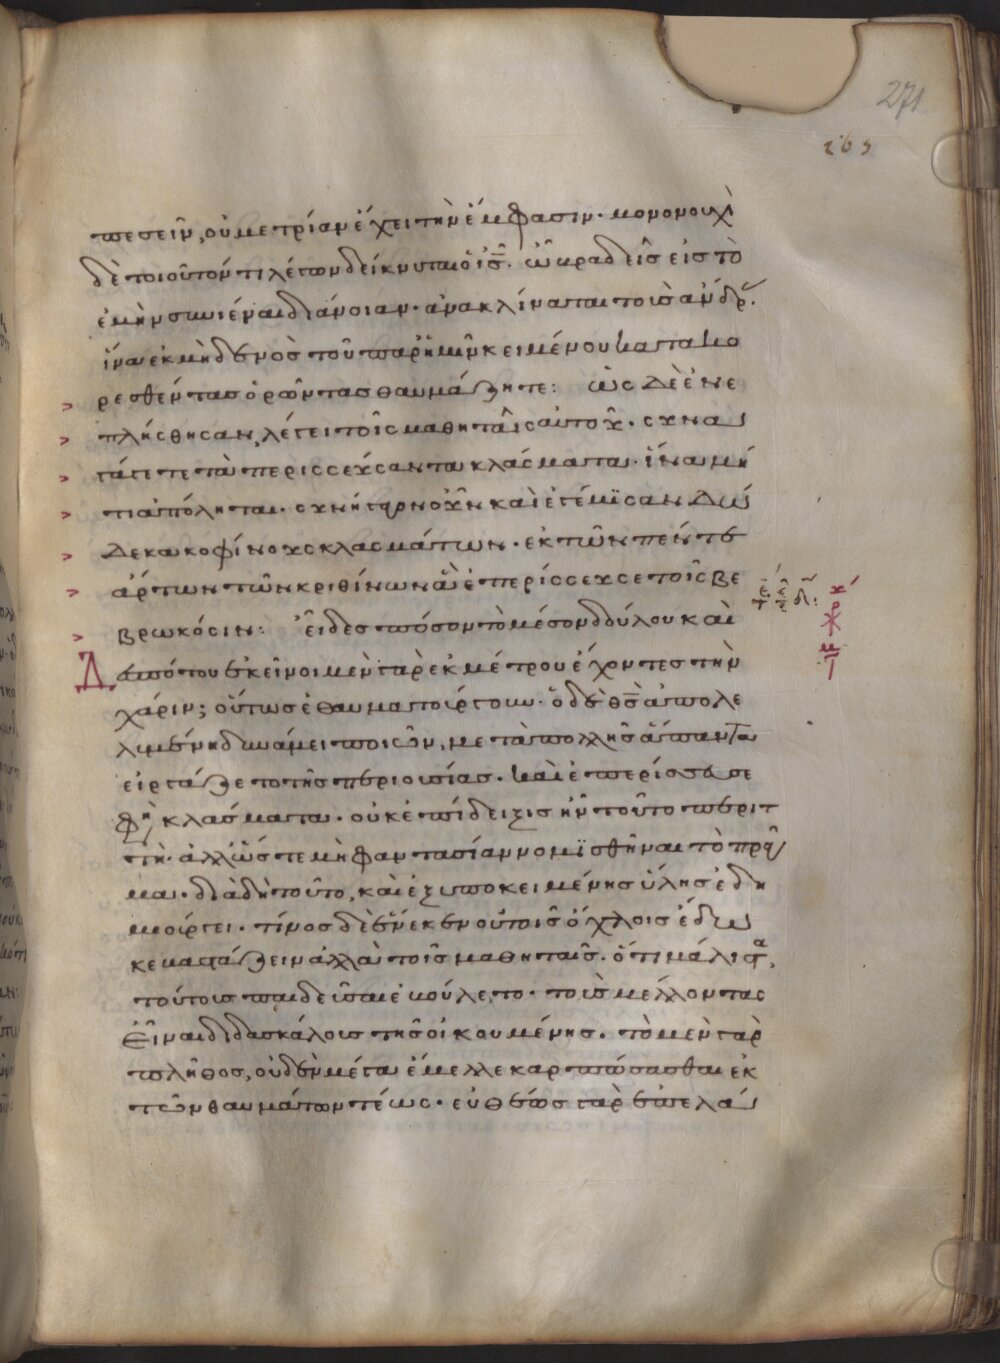 271
265
πεσεῖν, οὐ μετρίαν ἔχει τὴν ἔμφασιν· μονονουχὶ
δὲ τοιοῦτόν τι λέγων δείκνυται ὁ ι̅ς̅. ὦ βραδεῖς εἰς τὸ
ἐμὴν συνιέναι διάνοιαν· ἀνακλίναται τοὺς ἄνδρ·
ἵνα ἐκ μηδενὸς τοῦ παρ' ἡμῖν κειμένου κατακο
ρεσθέντας ὁρῶντας θαυμάζητε: ὡς δὲ ἐνε
πλήσθησαν, λέγει τοῖς μαθηταῖς αὐτοῦ· συνα
γάγετε τὰ περισσεύσαντα κλάσματα· ἵνα μή
τι ἀπόληται· συνήγαγον οὖν καὶ ἐγέμϊσαν δώ
δεκα κοφίνους κλασμάτων· ἐκ τῶν πέντε
ἄρτων τῶν κριθίνων ἃ ἐπερίσσευσε τοῖς βε
βρωκόσιν: εἶδες πόσον τὸ μέσον δούλου καὶ
Δεσπότου ἐκεῖνοι μὲν γὰρ ἐκ μέτρου ἔχοντες τὴν
χάριν; οὕτως ἐθαυματούργουν· ὁ δὲ θ̅ς̅ ἀπολε
λυμένη δυνάμει ποιῶν, μετὰ πολλῆς ἅπαντα
εἰργάζετο τῆς περιουσίας· καὶ ἐπερίσσευσε
φη κλάσματα· οὐκ ἐπίδειξις ἦν τοῦτο περιτ
τὴ· ἀλλ' ὥστε μὴ φαντασίαν νομϊσθῆναι τὸ πρᾶγ
μα· διὰ δὴ τοῦτο, καὶ ἐξ ὑποκειμένης ὕλης ἐδη
μιούργει· τίνος δὲ ἕνεκεν οὐ τοῖς ὄχλοις ἔδω
κε βαστάζειν ἀλλὰ τοῖς μαθηταῖς· ὅτι μάλιστα,
τούτους παιδεῦσαι ἐβούλετο· τοὺς μέλλοντας
εἶναι διδασκάλους τῆς οἰκουμένης· τὸ μὲν γὰρ
πλῆθος, οὐδὲν μέγα ἔμελλε καρπώσασθαι ἐκ
τῶν θαυμάτων τέως· εὐθέως γὰρ ἐπελά